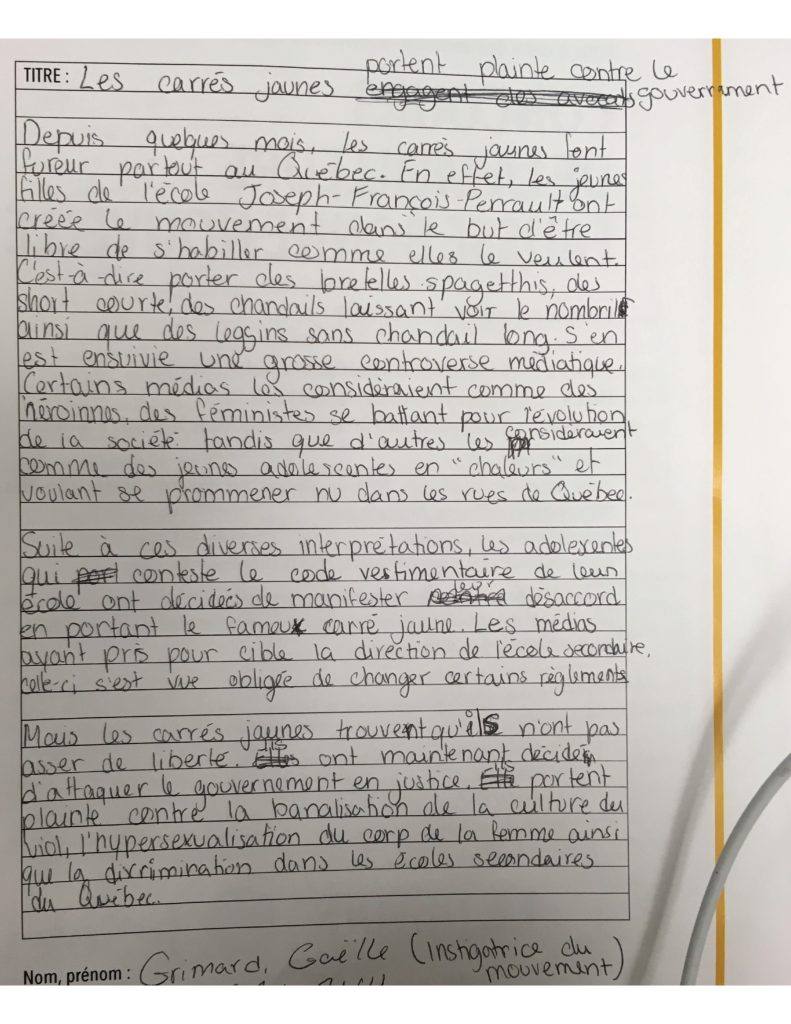 portent plainte contre le
TITRE : Les carrés jaunes engagent des avocats gouvernment
Depuis quelques mois, les carrés jaunes font
fureur partout au Québec. En effet, les jeunes
filles de l'école Joseph-François-Perrault ont
créée le mouvement dans le but d'être
libre de s'habiller comme elles le veulent.
C'est-à-dire porter des bretelles spagetthis, des
short courte, des chandails laissant voir le nombril
ainsi que des leggins sans chandail long. S'en
est ensuivie une grosse controverse médiatique.
Certains médias les considéraient comme des
héroinnes, des féministes se battant pour l'évolution
de la société tandis que d'autres les considéraient
comme des jeunes adolescentes en "chaleurs" et
voulant se prommener nu dans les rues de Québec.
Suite à ces diverses interprétations, les adolexentes
qui conteste le code vestimentaire de leur
école ont décidées de manifester leur désaccord
en portant le fameux carré jaune. Les médias
ayant pris pour cible la direction de l'école secondaire,
celle-ci s'est vue obligée de changer certains règlements
Mais les carrés jaunes trouvent qu'ils n'ont pas
asser de liberté. Ils ont maintenant décidé
d'attaquer le gouvernement en justice. Ils portent
plainte contre la banalisation de la culture du
viol, l'hypersexualisation du corp de la femme ainsi
que la discrimination dans les écoles secondaires
du Québec.
Nom, prénom : Grimard, Gaëlle (Instigatrice du
mouvement)